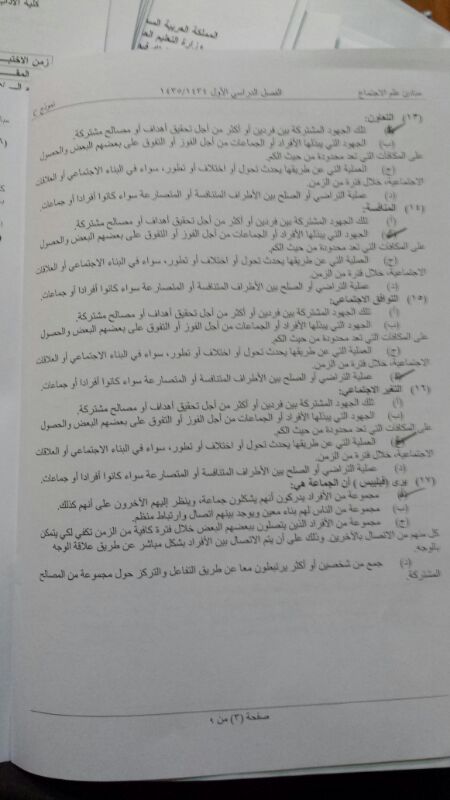 كلية الآداب
زمن الاختبار
المملكة العربية
وزارة التعليم
مبادئ علم الاجتماع
الفصل الدراسي الأول ١٤٣٥/١٤٣٤
نموذج ج
(١٣) التعاون:
(أ) تلك الجهود المشتركة بين فردين أو أكثر من أجل تحقيق أهداف أو مصالح مشتركة.
(ب) الجهود التي يبذلها الأفراد أو الجماعات من أجل الفوز أو التفوق على بعضهم البعض والحصول
على المكافآت التي تعد محدودة من حيث الكم.
(ج) العملية التي عن طريقها يحدث تحول أو اختلاف أو تطور، سواء في البناء الاجتماعي أو العلاقات
الاجتماعية، خلال فترة من الزمن.
(د) عملية التراضي أو الصلح بين الأطراف المتنافسة أو المتصارعة سواء كانوا أفرادا أو جماعات
(١٤) المنافسة:
(أ) تلك الجهود المشتركة بين فردين أو أكثر من أجل تحقيق أهداف أو مصالح مشتركة.
(ب) الجهود التي يبذلها الأفراد أو الجماعات من أجل الفوز أو التفوق على بعضهم البعض والحصول
على المكافآت التي تعد محدودة من حيث الكم.
(ج) العملية التي عن طريقها يحدث تحول أو اختلاف أو تطور، سواء في البناء الاجتماعي أو العلاقات
الاجتماعية، خلال فترة من الزمن.
(د) عملية التراضي أو الصلح بين الأطراف المتنافسة أو المتصارعة سواء كانوا أفرادا أو جماعات.
(١٥) التوافق الاجتماعي:
(أ) تلك الجهود المشتركة بين فردين أو أكثر من أجل تحقيق أهداف أو مصالح مشتركة.
(ب) الجهود التي يبذلها الأفراد أو الجماعات من أجل الفوز أو التفوق على بعضهم البعض والحصول
على المكافآت التي تعد محدودة من حيث الكم.
(ج) العملية التي عن طريقها يحدث تحول أو اختلاف أو تطور، سواء في البناء الاجتماعي أو العلاقات
الاجتماعية، خلال فترة من الزمن.
(د) عملية التراضي أو الصلح بين الأطراف المتنافسة أو المتصارعة سواء كانوا أفرادا أو جماعات.
(١٦) التغير الاجتماعي:
(أ) تلك الجهود المشتركة بين فردين أو أكثر من أجل تحقيق أهداف أو مصالح مشتركة.
(ب) الجهود التي يبذلها الأفراد أو الجماعات من أجل الفوز أو التفوق على بعضهم البعض والحصول
على المكافآت التي تعد محدودة من حيث الكم.
(ج) العملية التي عن طريقها يحدث تحول أو اختلاف أو تطور، سواء في البناء الاجتماعي أو العلاقات
الاجتماعية، خلال فترة من الزمن.
(د) عملية التراضي أو الصلح بين الأطراف المتنافسة أو المتصارعة سواء كانوا أفرادا أو جماعات.
(١٧) يرى (فيليبس) أن الجماعة هي:
(أ) مجموعة من الأفراد يدركون أنهم يشكلون جماعة، وينظر إليهم الآخرون على أنهم كذلك.
(ب) مجموعة من الناس لهم بناء معين ويوجد بينهم اتصال وارتباط منظم.
(ج) مجموعة من الأفراد الذين يتصلون ببعضهم البعض خلال فترة كافية من الزمن تكفي لكي يتمكن
كل منهم من الاتصال بالآخرين. وذلك على أن يتم الاتصال بين الأفراد بشكل مباشر عن طريق علاقة الوجه
بالوجه.
(د) جمع من شخصين أو أكثر يرتبطون معا عن طريق التفاعل والتركز حول مجموعة من المصالح
المشتركة.
صفحة (٣) من ٩